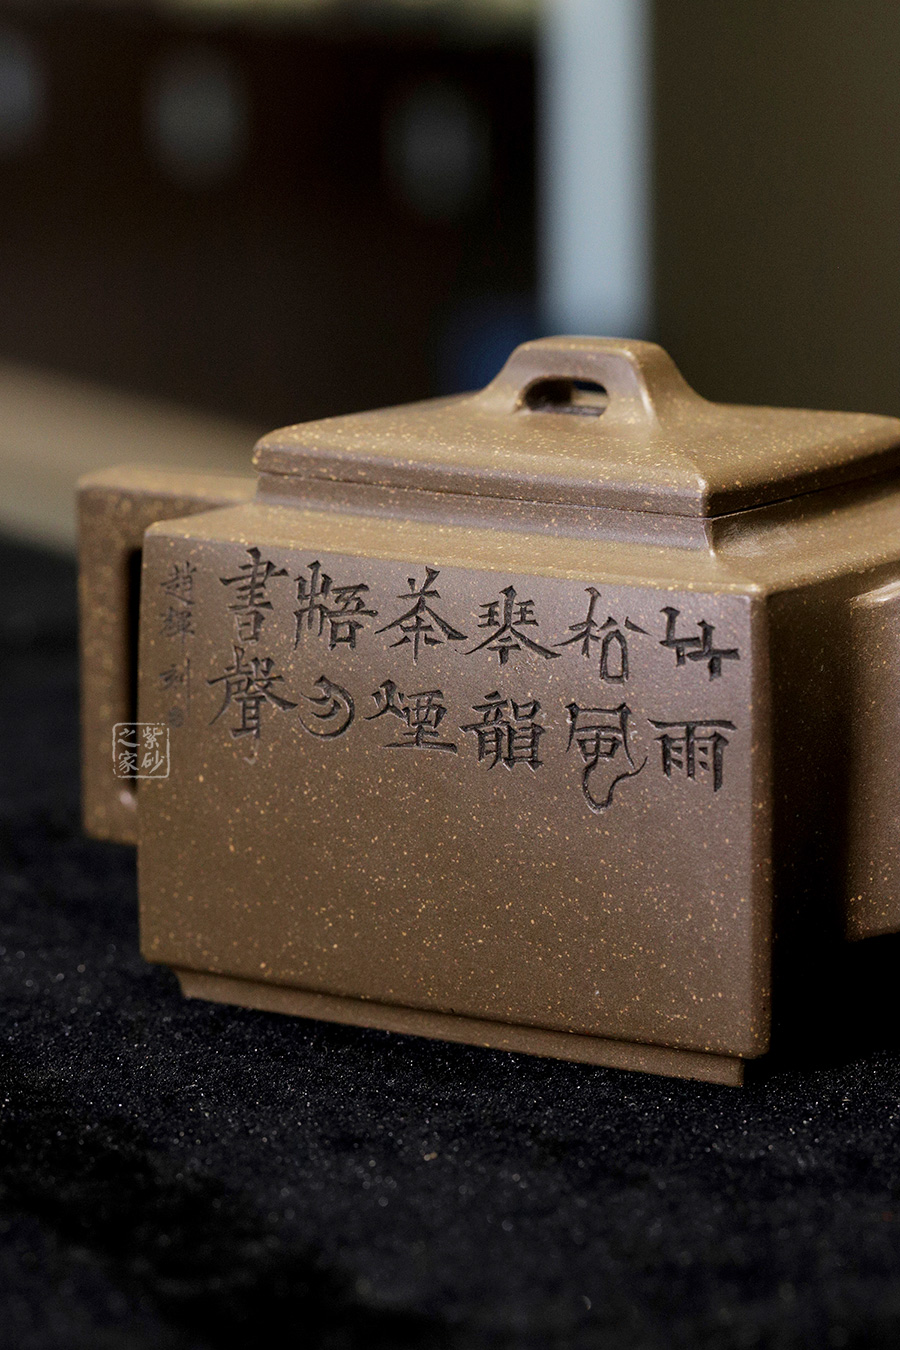 竹雨
松風
琴韻
茶煙
梧月
書聲
趙輝刻
紫砂
之家